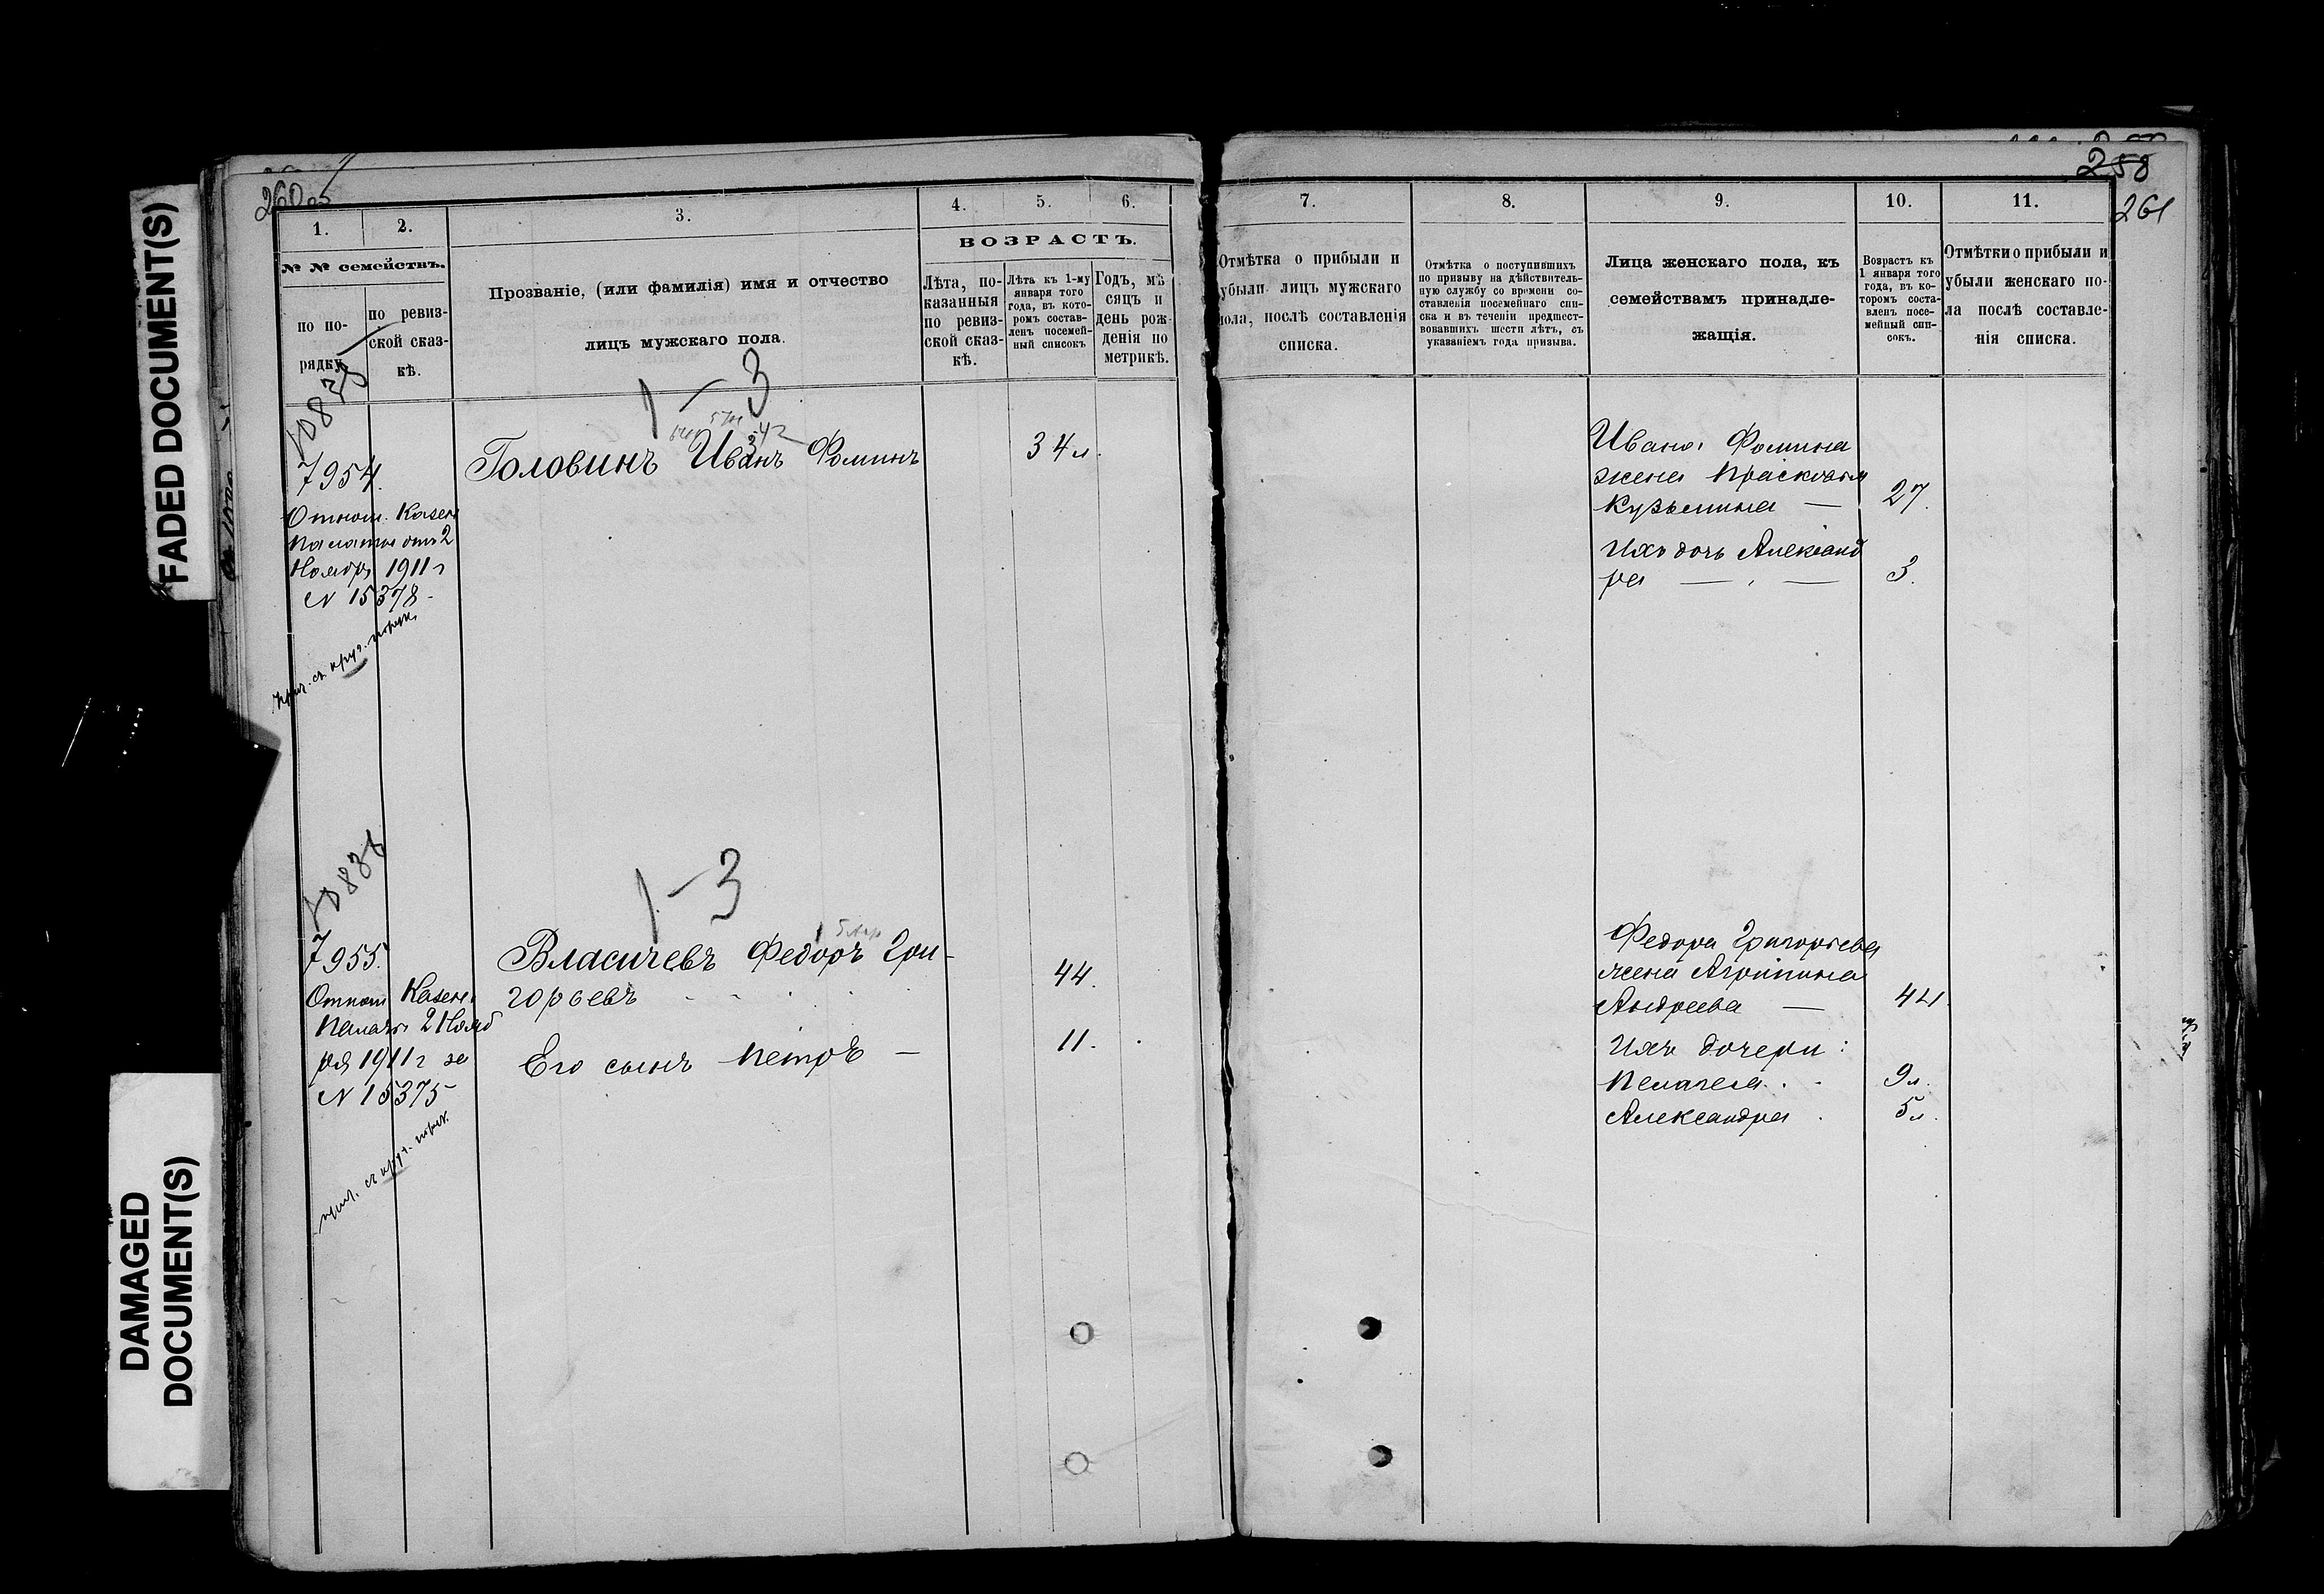 FADED DOCUMENT(S)
DAMAGED
DOCUMENT(S)
260 об
1.
2.
3.
4.
5.
6.
№ № семействъ.
по по-
рядку.
по ревиз-
ской сказ-
кѣ.
Прозваніе, (или фамилія) имя и отчество
лицъ мужскаго пола.
ВОЗРАСТЪ.
Лѣта, по-
казанныя
по ревиз-
ской сказ-
кѣ.
Лѣта къ 1-му
января того
года, въ кото-
ромъ состав-
ленъ посемей-
ный списокъ
Годъ, мѣ
сяцъ и
день рож-
денія по
метрикѣ.
1-3
7954.
Головинъ Иванъ Фоминъ
34 л.
Отнош. Казен
Палаты отъ 2
Ноября 1911 г
N 15378-
1-3
7955.
Власичевъ Федоръ Гри-
горьевъ
44.
Отнош Казен.
Палаты 2 Нояб
ря 1911 г за
N 15375
Его сынъ Петръ —
11.
258
261
7.
8.
9.
10.
11.
Отмѣтка о прибыли и
убыли лицъ мужскаго
пола, послѣ составленія
списка.
Отмѣтка о поступившихъ
по призыву на дѣйствитель-
ную службу со времени со-
ставленія посемейнаго спи-
ска и въ теченіи предшест-
вовавшихъ шести лѣтъ, съ
указаніемъ года призыва.
Лица женскаго пола, къ
семействамъ принадле-
жащія.
Возрастъ къ
1 января того
года, въ ко-
торомъ соста-
вленъ посе-
мейный спи-
сокъ.
Отмѣтки о прибыли и
убыли женскаго по-
ла послѣ составле-
нія списка.
Ивана Фомина
жена Прасковья
Кузьмина — 27.
Ихъ дочь Александ
ра — 3.
Федора Григорьева
жена Агрипина
Андреева — 44.
Ихъ дочери:
Пелагея. 9 л.
Александра 5 л.